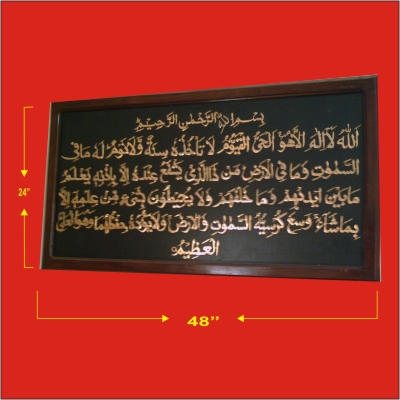 بسم الله الرحمن الرحيم
الله لا اله الا هو الحي القيوم لا تأخذه سنة ولا نوم له ما في
السموت وما في الارض من ذا الذي يشفع عنده الا باذنه يعلم
ما بين ايديهم وما خلفهم ولا يحيطون بشيء من علمه الا
بما شاء وسع كرسيه السموت والارض ولا يؤده حفظهما وهو العلي
العظيم
24"
48"